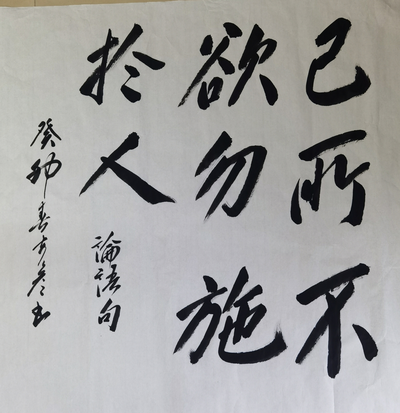 己所不
欲勿施
於人
論語句
癸卯春方彦書